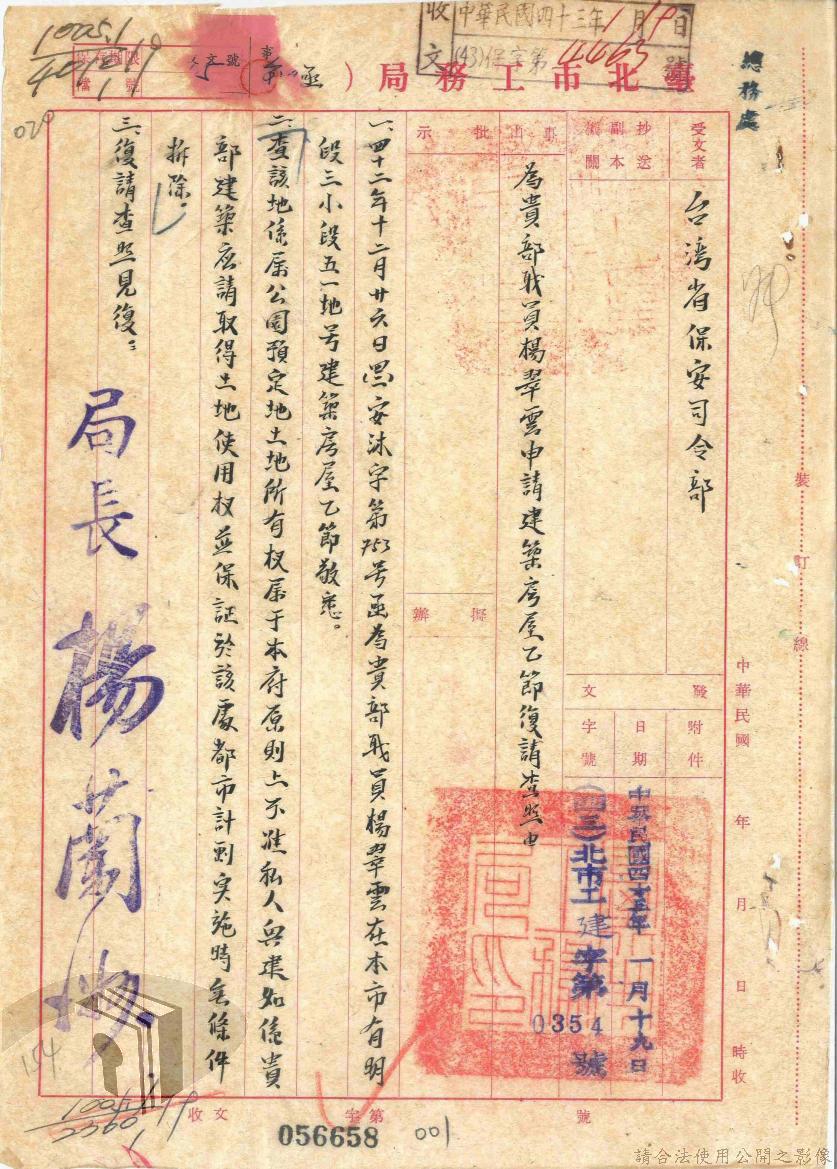 收文
中華民國四十三年1月19日
(43)保字第4463號
1005.1
保存期限
檔號
文號
臺北市工務局(函)
總務處
受文者
台湾省保安司令部
抄送副本機關
事由
為貴部戢員楊翠雲申請建築房屋乙節復請查照由
批示
擬辦
發文
附件
日期
字號
中華民國四十三年一月十九日
(四三)北市工建字第0354號
一、四十二年十二月廿六日(四二)安沐字第753号函為貴部戢員楊翠雲在本市有明
段三小段五一地号建築房屋乙節敬悉。
二、查該地係屬公園預定地土地所有权屬于本府原則上不准私人興建如係貴
部建築应請取得土地使用权並保証於該處都市計劃实施時無條件
拆除。
三、復請查照見復。
局長楊蘭
裝訂線
中華民國 年 月 日 時收
收文 字第 號
056658
001
154
請合法使用公開之影像